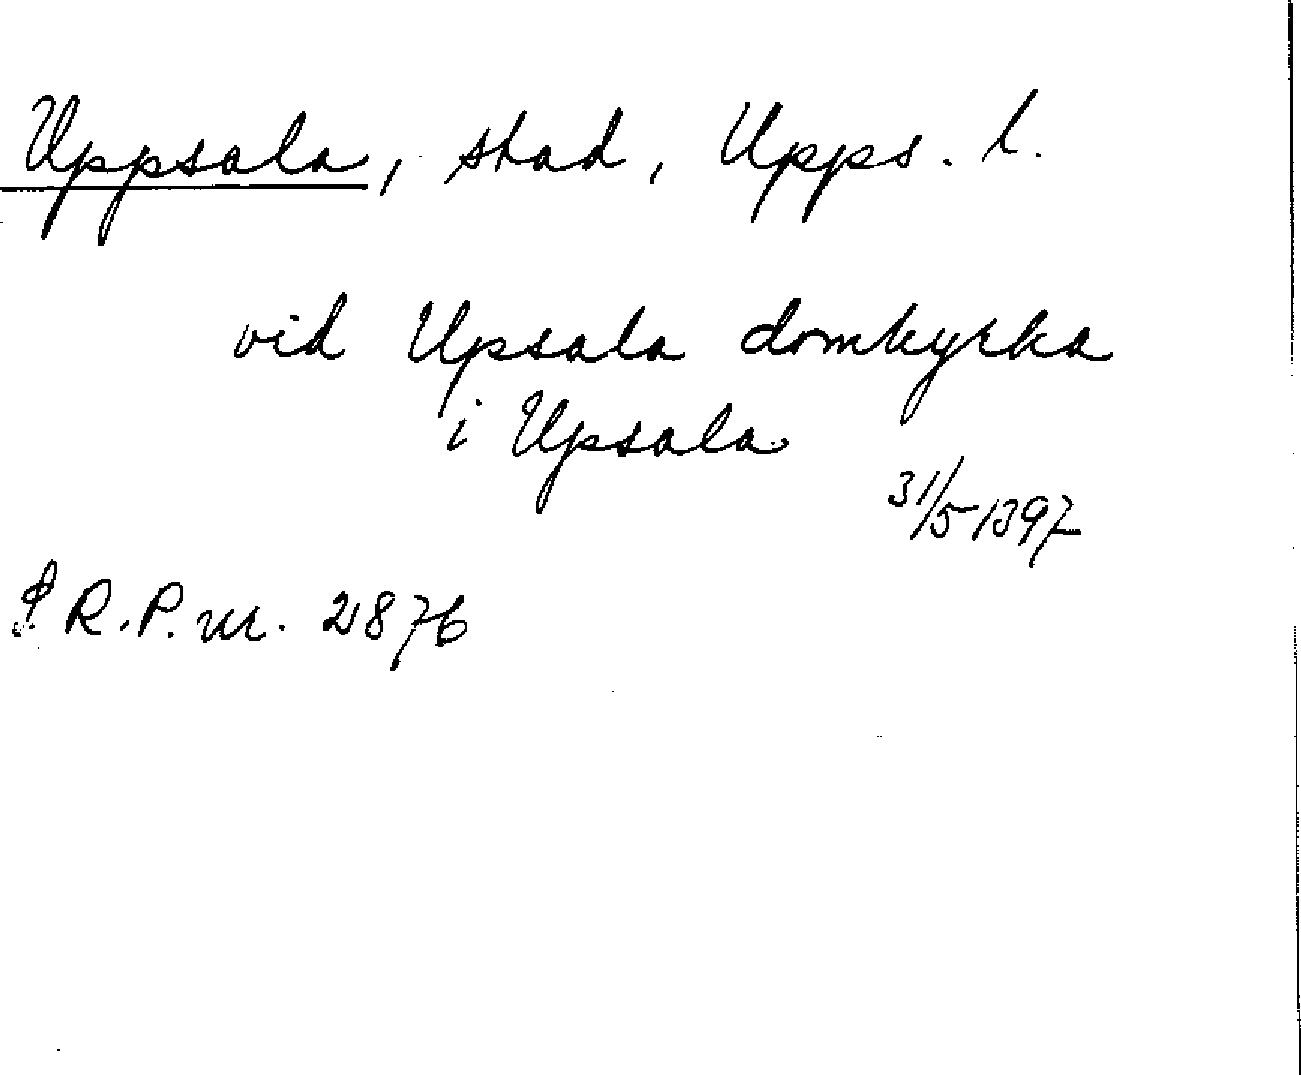 Uppsala, stad, Upps. l.
vid Upsala domkyrka
i Upsala
31/5 1397
R.P. nr. 2876